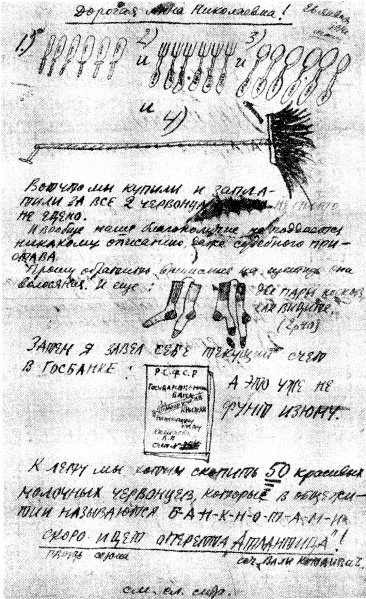 Дорогая Николаевна!
1.) 2) и 3) и
и
4)
Вот что мы купили и запла-
тили за все 2 червонца
не едено.
И вообще наше благополучие не поддается
никакому описанию даже судебного при-
става.
Прошу обратить внимание на она
волосяная. И еще:
две пары носков,
как видите.
(2р40)
Затем я завел себе текущий счет
в Госбанке:
Р.С.Ф.С.Р
Государственный
Банк
книжка
текущему
счету
А это уже не
фунт изюму
К лету мы хотим скопить 50 красивых
молочных червонцев, которые в общежи-
тии называются Б-А-Н-К-Н-О-Т-А-М-И
Скоро идет оперетта „Атлантида"!
соч. Вали Катаевич,
см. сл. стр.